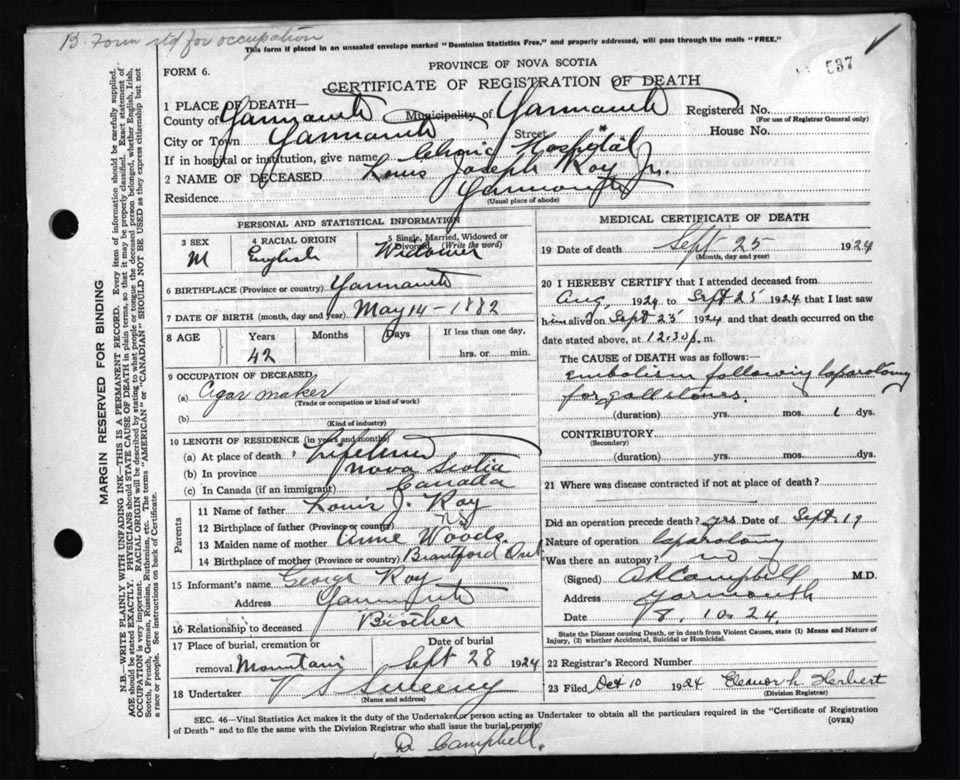 B. Form std for occupation
This form if placed in an unsealed envelope marked "Dominion Statistics Free," and properly addressed, will pass through the mails "FREE."
537
PROVINCE OF NOVA SCOTIA
FORM 6.
CERTIFICATE OF REGISTRATION OF DEATH
MARGIN RESERVED FOR BINDING
N.B.—WRITE PLAINLY WITH UNFADING INK—THIS IS A PERMANENT RECORD. Every item of information should be carefully supplied.
AGE should be stated EXACTLY. PHYSICIANS should STATE CAUSE OF DEATH in plain terms, so that it may be properly classified. Exact statement of
OCCUPATION is very important. RACIAL ORIGIN will be described by stating to what people or tongue the deceased person belonged, whether English, Irish,
Scotch, French, German, Russian, Ruthenian, etc. The terms "AMERICAN" or "CANADIAN" SHOULD NOT BE USED as they express citizenship but not
a race or people. See instructions on back of Certificate.
1 PLACE OF DEATH—
County of Yarmouth Municipality of Yarmouth Registered No.
(For use of Registrar General only)
City or Town Yarmouth Street House No.
If in hospital or institution, give name Hospital
2 NAME OF DECEASED Louis Joseph Roy Jr.
Residence Yarmouth
(Usual place of abode)
PERSONAL AND STATISTICAL INFORMATION
3 SEX M
4 RACIAL ORIGIN English
5 Single, Married, Widowed or Divorced (Write the word) Widower
6 BIRTHPLACE (Province or country) Yarmouth
7 DATE OF BIRTH (month, day and year) May 14 - 1882
8 AGE Years Months Days If less than one day,
42 hrs. or min.
9 OCCUPATION OF DECEASED
(a) Cigar maker
(Trade or occupation or kind of work)
(b)
(Kind of industry)
10 LENGTH OF RESIDENCE (in years and months)
(a) At place of death Lifetime
(b) In province Nova Scotia
(c) In Canada (if an immigrant) Canada
Parents
11 Name of father Louis J. Roy
12 Birthplace of father (Province or country) N.S.
13 Maiden name of mother Annie Woods
14 Birthplace of mother (Province or country) Brantford Ont
15 Informant's name George Roy
Address Yarmouth
16 Relationship to deceased Brother
17 Place of burial, cremation or Date of burial
removal Mountain Sept 28 1924
18 Undertaker V S Sweeny
(Name and address)
MEDICAL CERTIFICATE OF DEATH
19 Date of death Sept 25 1924
(Month, day and year)
20 I HEREBY CERTIFY that I attended deceased from
Aug, 1924 to Sept 25 1924 that I last saw
him alive on Sept 25 1924 and that death occurred on the
date stated above, at 12.30 p. m.
The CAUSE OF DEATH was as follows:—
Embolism following laparotomy
for gallstones.
(duration) yrs. mos. 1 dys.
CONTRIBUTORY
(Secondary)
(duration) yrs. mos. dys.
21 Where was disease contracted if not at place of death?
Did an operation precede death? yes Date of Sept. 19
Nature of operation laparotomy
Was there an autopsy? no
(Signed) Campbell M.D.
Address Yarmouth
Date 8. 10. 24.
State the Disease causing Death, or in death from Violent Causes, state (1) Means and Nature of
Injury, (2) whether Accidental, Suicidal or Homicidal.
22 Registrar's Record Number
23 Filed Oct 10 1924 Eleanor h Herbert
(Division Registrar)
SEC. 46—Vital Statistics Act makes it the duty of the Undertaker or person acting as Undertaker to obtain all the particulars required in the "Certificate of Registration
of Death" and to file the same with the Division Registrar who shall issue the burial permit.
(OVER)
D. Campbell.